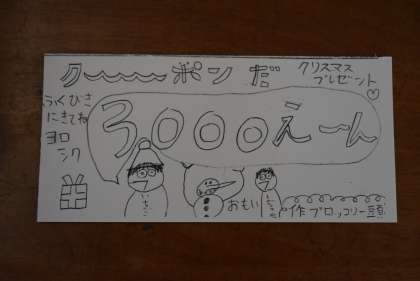 ク〜ポンだ
クリスマス
プレゼント
ふくびき
にきてね
ヨロ
シク
3000え〜ん
いちご
おもい
作ブロッコリー頭